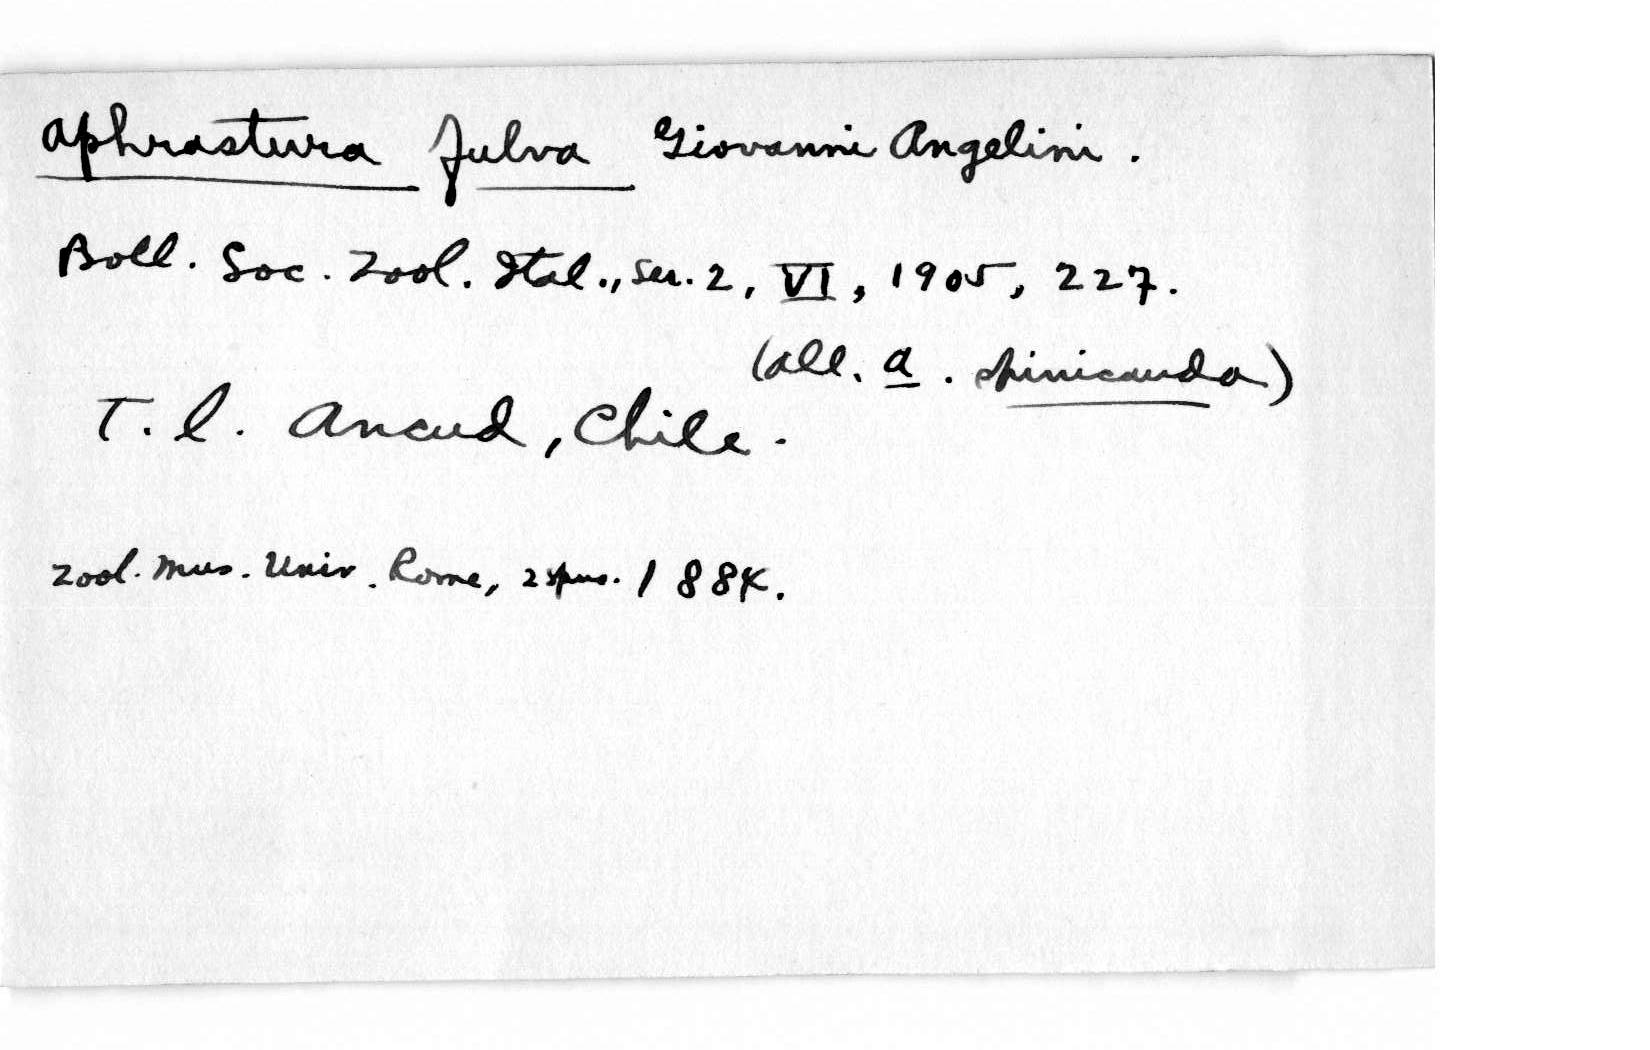 Aphrastura fulva Giovanni Angelini.
Boll. Soc. Zool. Ital., ser. 2, VI, 1905, 227.
(all. A. spinicauda)
T. l. Ancud, Chile.
Zool. Mus. Univ. Rome, 2 spms. 1884.